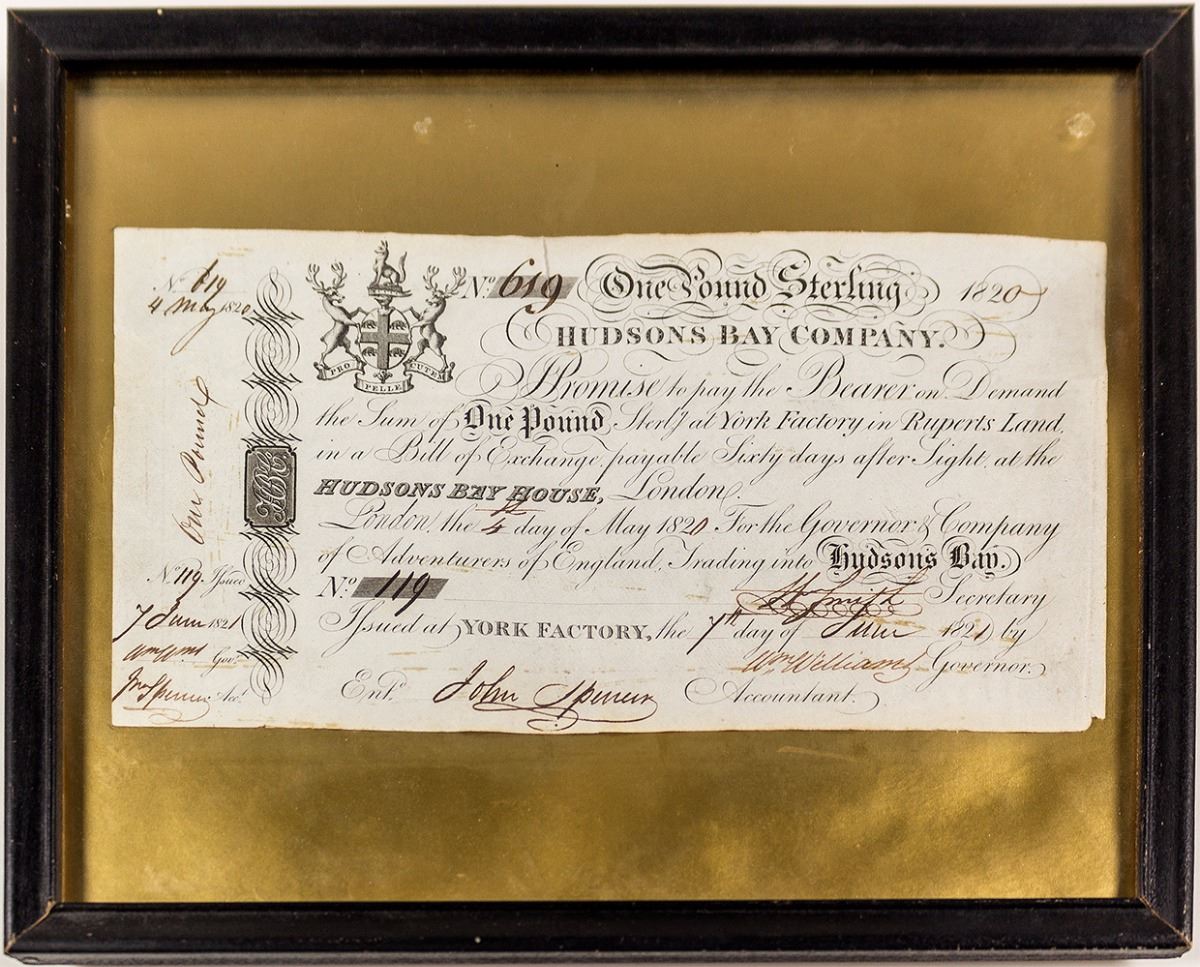 No. 619
4 May 1820
One Pound
No. 119 Issued
7 June 1821
Wm Wms Govr.
Jno Spencer Acct.
HBC
PRO PELLE CUTEM
No. 619 One Pound Sterling 1820
HUDSONS BAY COMPANY.
I Promise to pay the Bearer on Demand
the Sum of One Pound Sterlg at York Factory in Ruperts Land,
in a Bill of Exchange, payable Sixty days after Sight, at the
HUDSONS BAY HOUSE, London.
London, the 4th day of May 1820 For the Governor & Company
of Adventurers of England, Trading into Hudsons Bay.
No. 119 Wm Smith Secretary
Issued at YORK FACTORY, the 7th day of June 1821 by
Wm Williams Governor.
Entd. John Spencer Accountant.